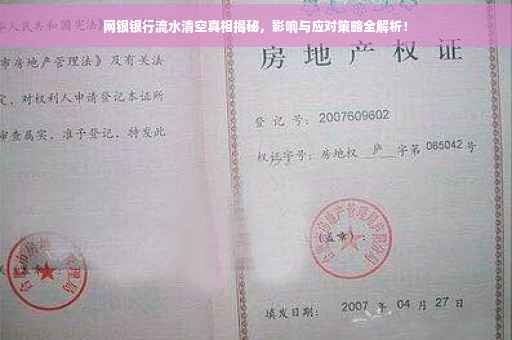 网银银行流水清空真相揭秘，影响与应对策略全解析！
人民共和国宪法》
市房地产管理法》及有关法
定，对权利人申请登记本证所
审查属实，准予登记，特发此
房地产权证
登记号：2007609602
权证字号：房地权 庐 字第 065042 号
(盖章)：
填发日期：2007 年 04 月 27 日